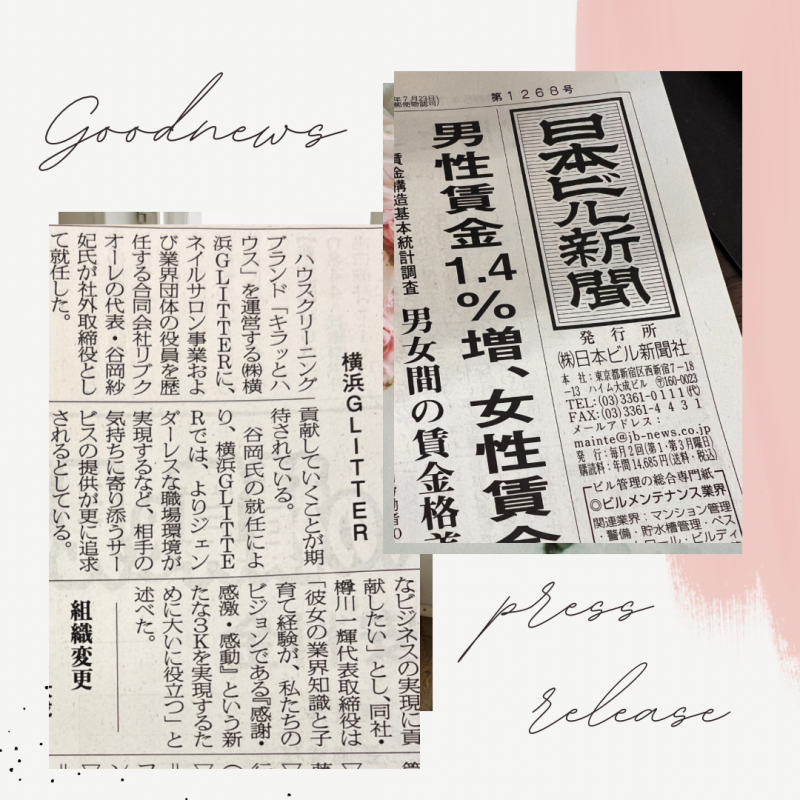 Goodnews
年7月23日)
郵便物認可)
第1268号
日本ビル新聞
発行所
㈱日本ビル新聞社
本 社：東京都新宿区西新宿7−18
−13 ハイム大成ビル 〒160-0023
TEL:(03)3361-0111(代)
FAX:(03)3361-4431
メールアドレス：
mainte@jb-news.co.jp
発 行：毎月2回(第1・第3月曜日)
購読料：年間14,685円(送料・税込)
ビル管理の総合専門紙
◎ビルメンテナンス業界
関連業界：マンション管理
・警備・貯水槽管理・ペス
男性賃金1.4%増、女性賃金
賃金構造基本統計調査
男女間の賃金格差
横浜GLITTER
ハウスクリーニング
ブランド「キラッとハ
ウス」を運営する㈱横
浜GLITTERに、
ネイルサロン事業およ
び業界団体の役員を歴
任する合同会社リブク
オーレの代表・谷岡紗
妃氏が社外取締役とし
て就任した。
貢献していくことが期
待されている。
谷岡氏の就任によ
り、横浜GLITTE
Rでは、よりジェン
ダーレスな職場環境が
実現するなど、相手の
気持ちに寄り添うサー
ビスの提供が更に追求
されるとしている。
なビジネスの実現に貢
献したい」とし、同社・
樽川一輝代表取締役は
「彼女の業界知識と子
育て経験が、私たちの
ビジョンである『感謝・
感激・感動』という新
たな3Kを実現するた
めに大いに役立つ」と
述べた。
組織変更
press
release